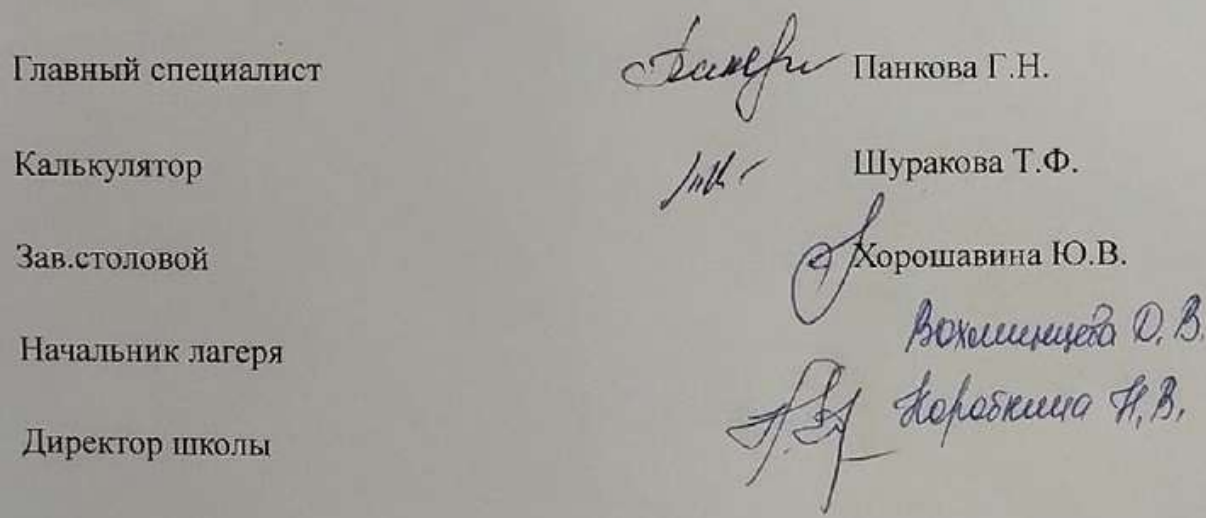 Главный специалист Панкова Г.Н.
Калькулятор Шуракова Т.Ф.
Зав.столовой Хорошавина Ю.В.
Начальник лагеря Вохминцева О.В.
Директор школы Коробкина Н.В.